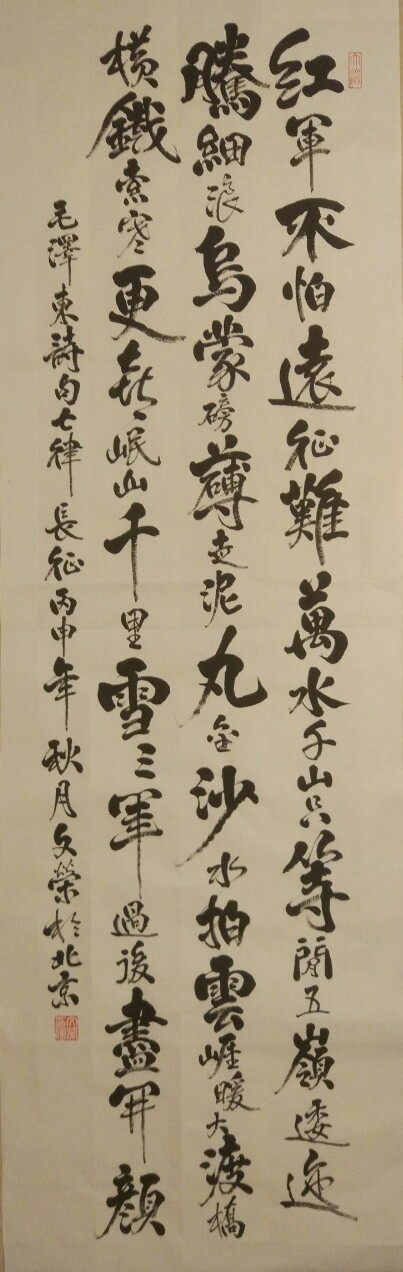 紅軍不怕遠征難萬水千山只等閒五嶺逶迤
騰細浪烏蒙磅薄走泥丸金沙水拍雲崖暖大渡橋
橫鐵索寒更喜岷山千里雪三軍過後盡開顏
毛澤東詩句七律長征丙申年秋月文榮於北京